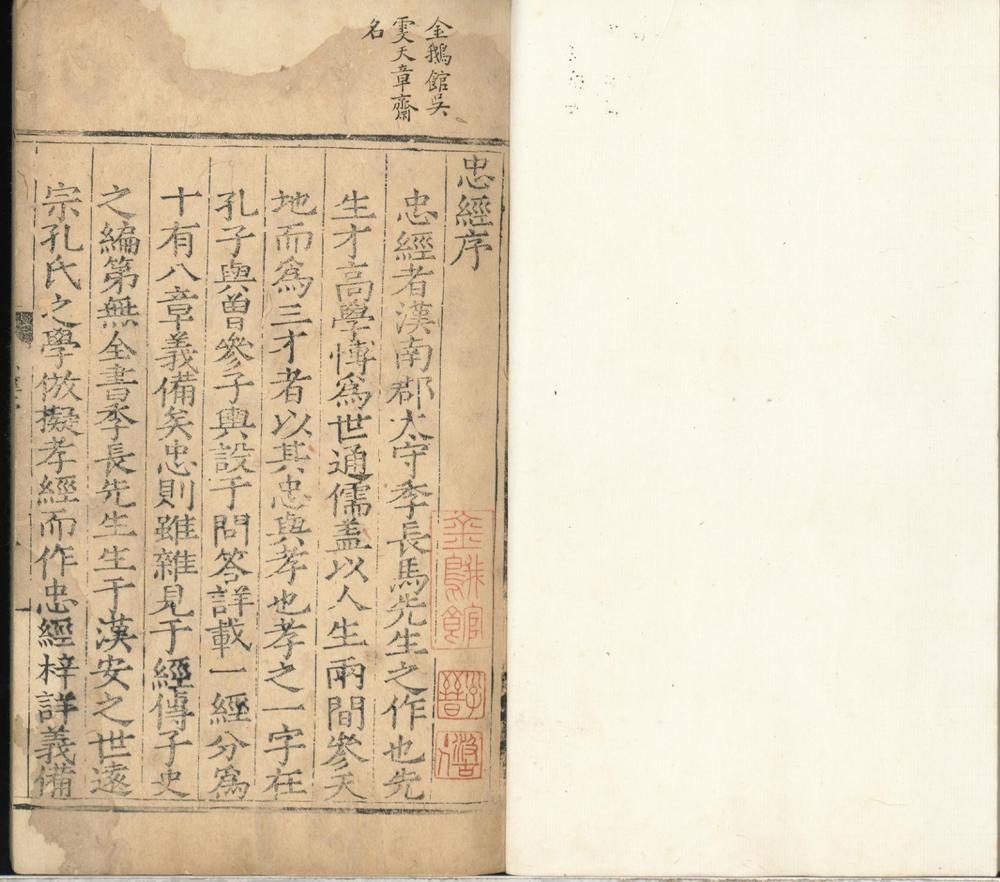 金鵝館吳
雯天章齋
名
忠經序
忠經者漢南郡太守季長馬先生之作也先
生才高學愽爲世通儒盖以人生兩間參天
地而爲三才者以其忠與孝也孝之一字在
孔子與曾參子輿設于問答詳載一經分爲
十有八章義備矣忠則雖雜見于經傳子史
之編第無全書季長先生生于漢安之世遠
宗孔氏之學倣擬孝經而作忠經梓詳義備
金鵝館